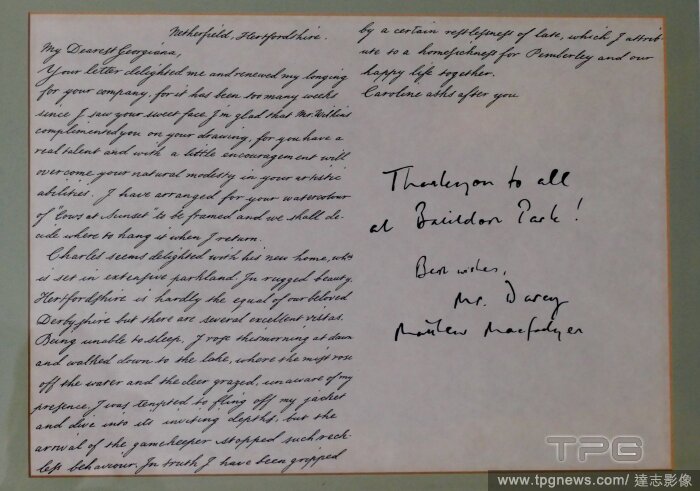 Netherfield, Hertfordshire.
My Dearest Georgiana,
Your letter delighted me and renewed my longing
for your company, for it has been too many weeks
since I saw your sweet face. I'm glad that Mr. Wilkins
complimented you on your drawing, for you have a
real talent and with a little encouragement will
overcome your natural modesty in your artistic
abilities. I have arranged for your watercolour
of "Cows at Sunset" to be framed and we shall de-
cide where to hang it when I return.
Charles seems delighted with his new home, wh
is set in extensive parkland. In rugged beauty,
Hertfordshire is hardly the equal of our beloved
Derbyshire but there are several excellent vistas.
Being unable to sleep, I rose this morning at dawn
and walked down to the lake, where the mist rose
off the water and the deer grazed, unaware of my
presence. I was tempted to fling off my jacket
and dive into its inviting depths, but the
arrival of the gamekeeper stopped such reck-
less behaviour. In truth I have been gripped
by a certain restlessness of late, which I attrib
ute to a homesickness for Pemberley and our
happy life together.
Caroline asks after you.
Thankyou to all
at Basildon Park!
Best wishes,
Mr. Darcy
Matthew Macfadyen
TPG
www.tpgnews.com/ 達志影像